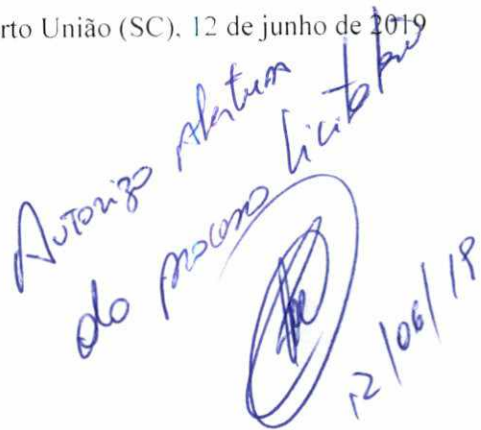 rto União (SC), 12 de junho de 2019
Autorizo Abertura
do processo licitatório
12/06/19